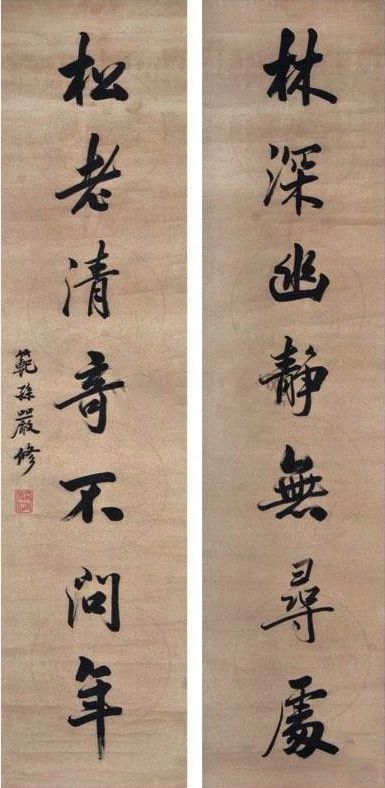 林深幽静無尋處
松老清奇不問年
範孫嚴修